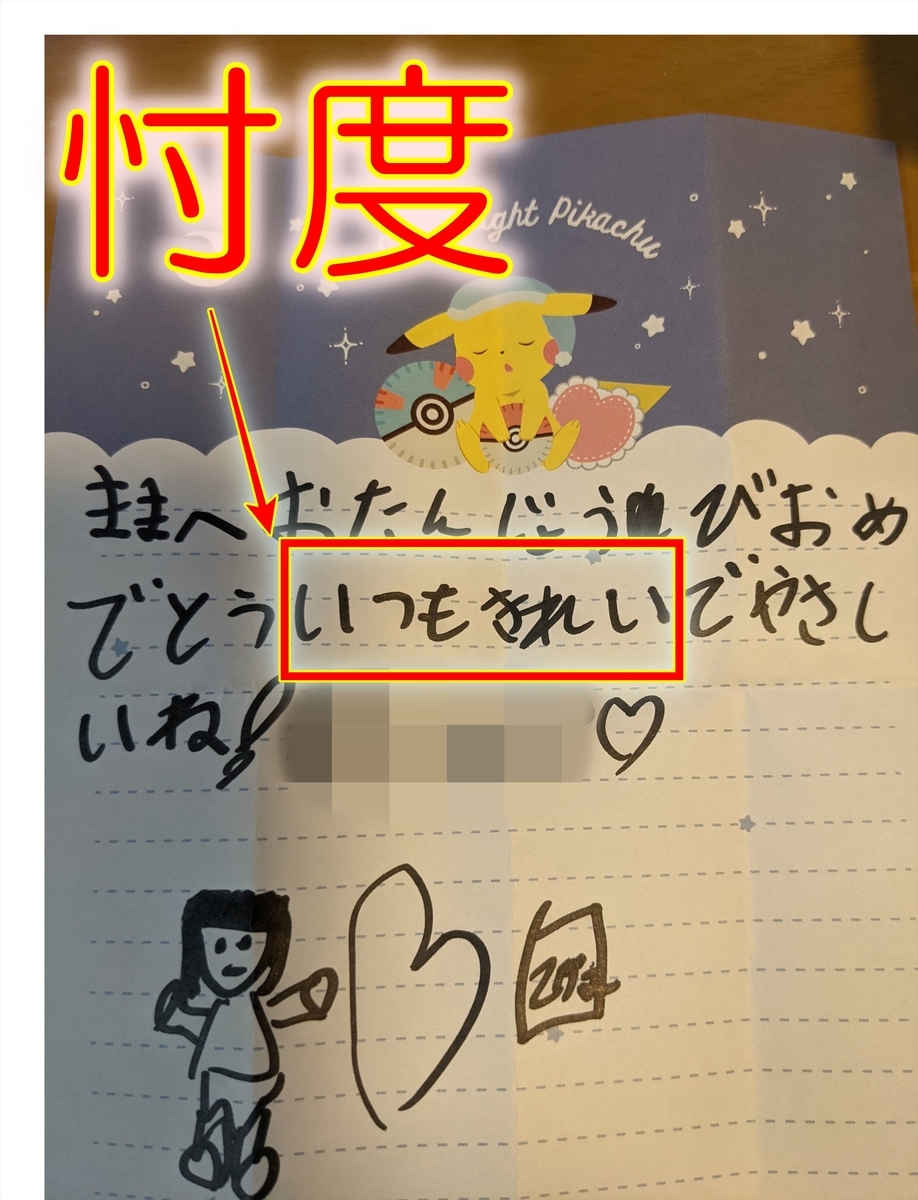 忖度
ght Pikachu
ままへ おたんじょうびおめ
でとういつもきれいでやさし
いね!